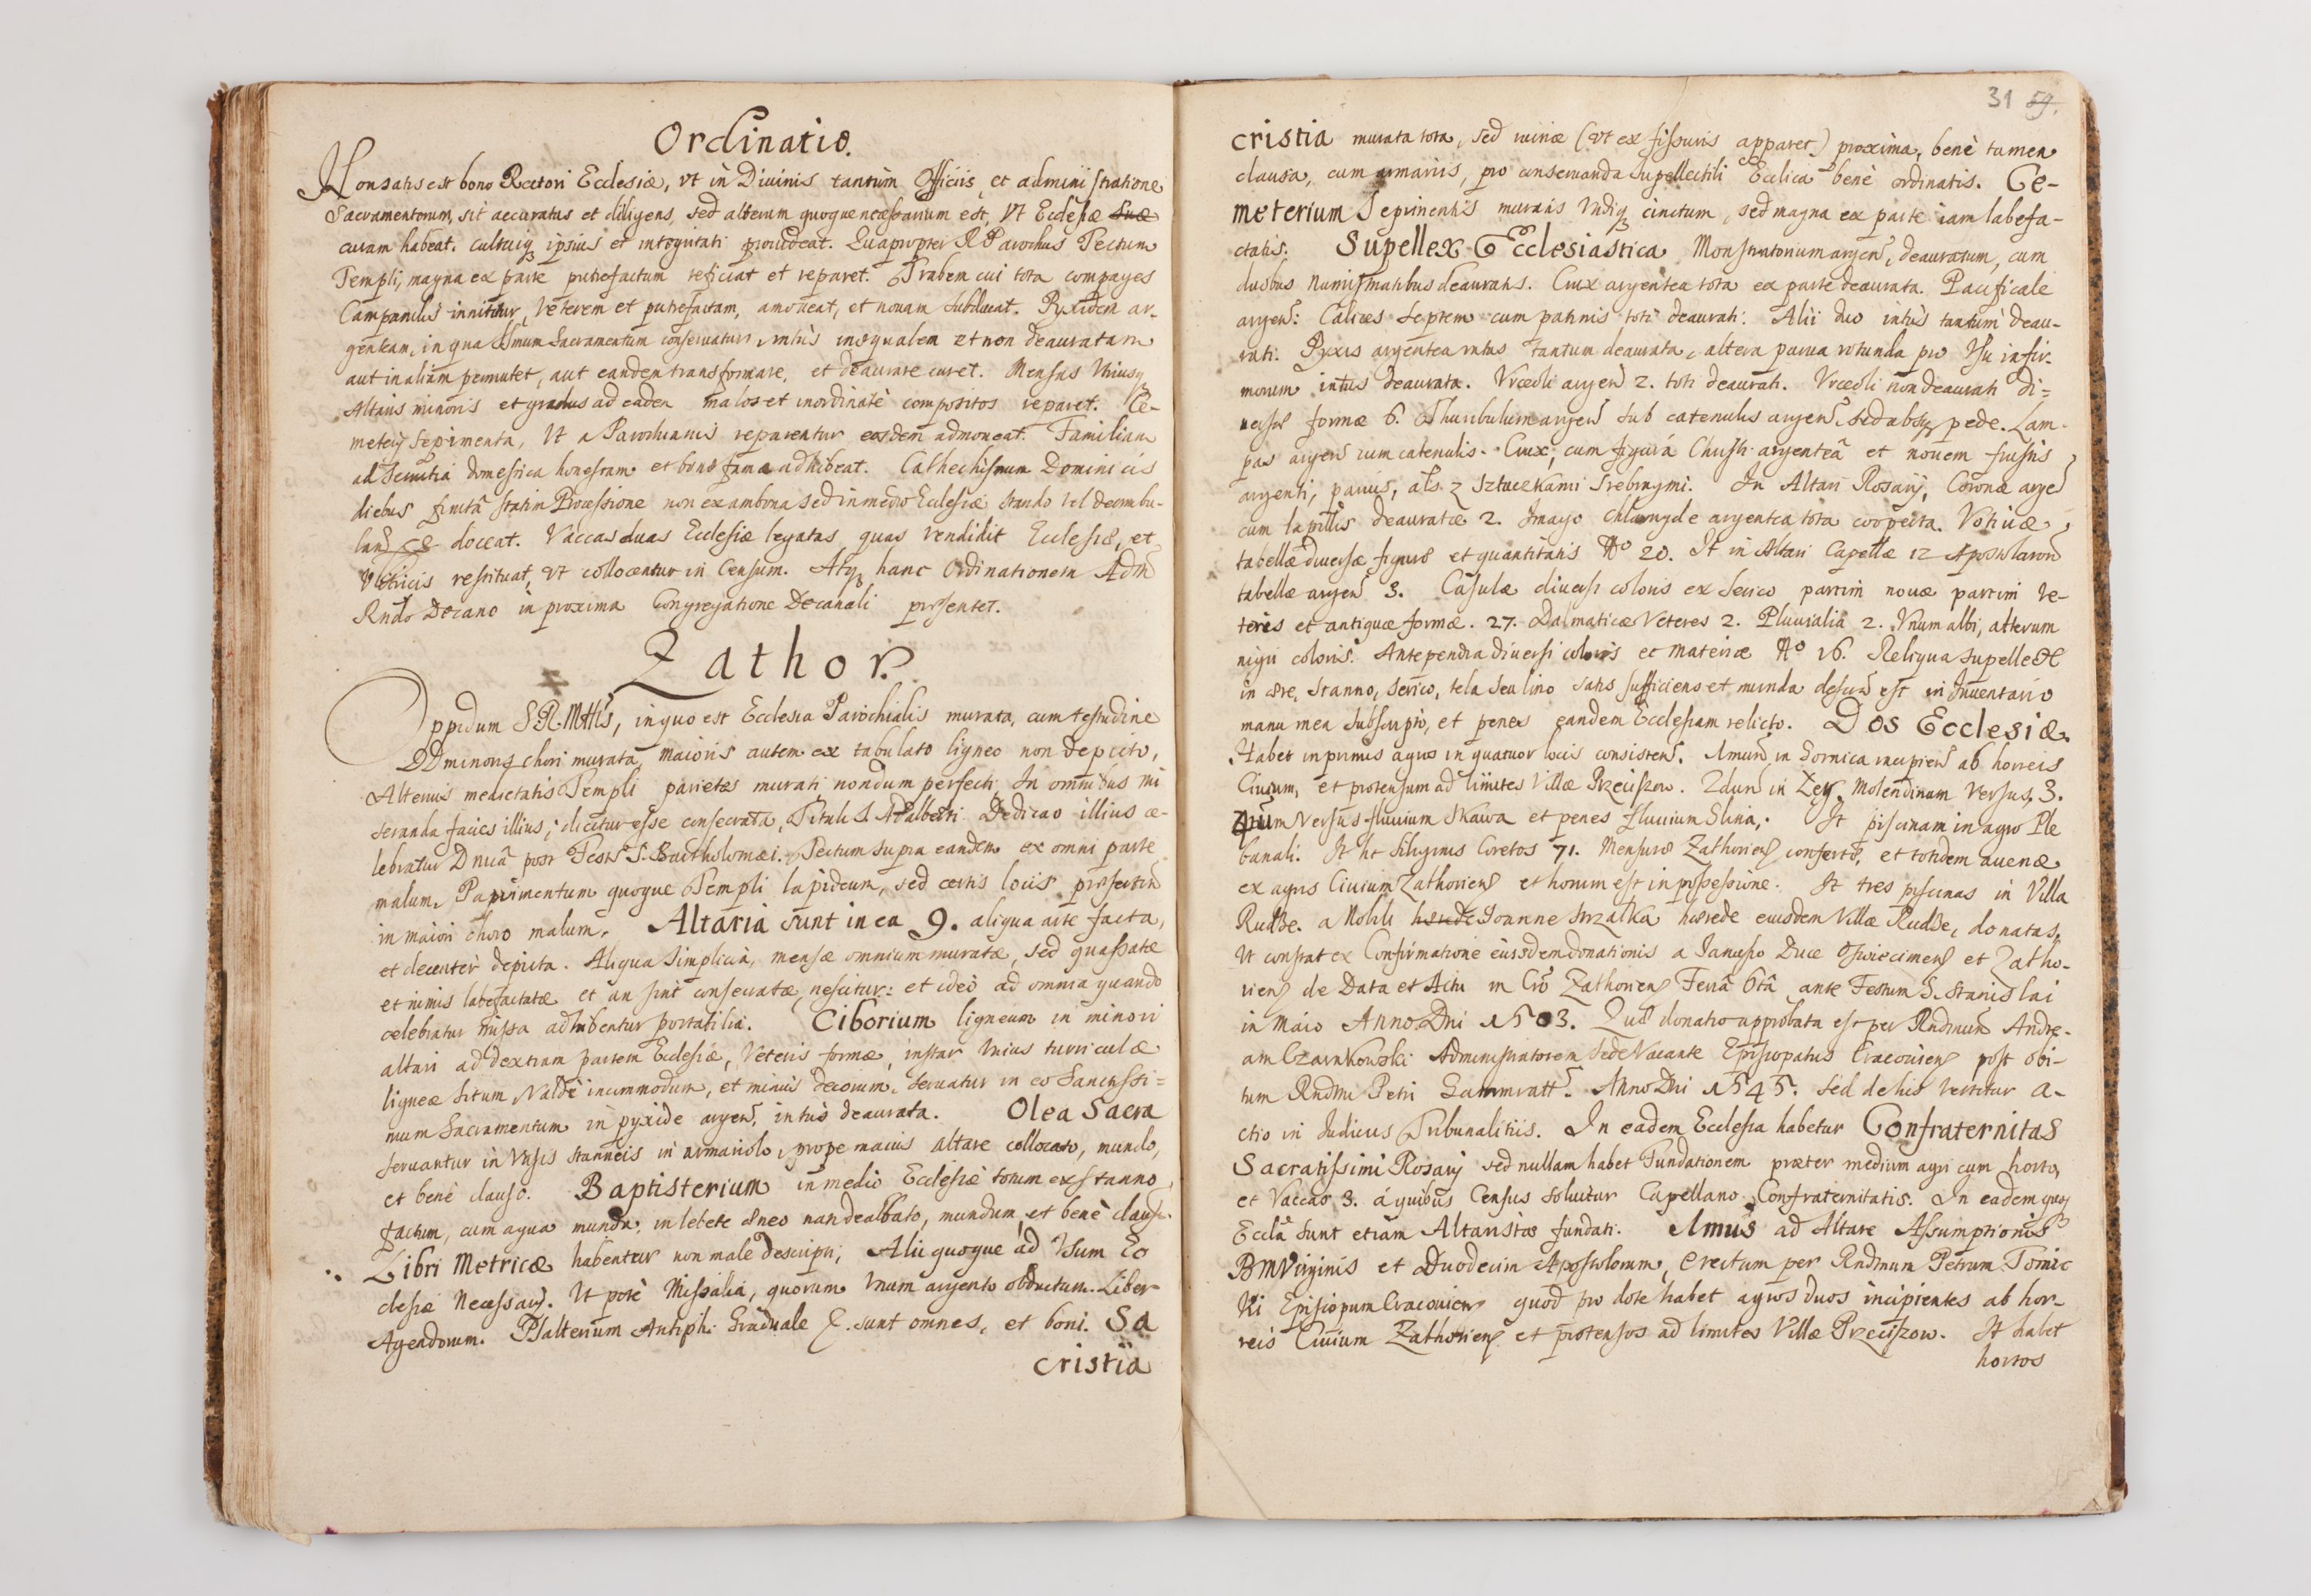 Ordinatio.
Non satis est bono Rectori Ecclesiæ, vt in Diuinis tantùm Officiis, et administratione
Sacramentorum, sit accuratus et diligens, sed alterum quoque necessarium est, Vt Ecclesiæ suæ
curam habeat, cultuiq3 ipsius et integritati prouideat. Quapropter R Parochus Tectum
Templi, magna ex parte putrefactum reficiat et reparet. Trabem cui tota compages
Campanilis innititur, veterem et putrefactam, amoueat, et nouam subducat. Pyxidem ar-
genteam, in qua Ssmum Sacramentum conseruatur, intùs inæqualem et non deauratam
aut in aliam permutet, aut eandem transformare, et deaurare curet. Mensas Vtriusq3
Altaris minoris et gradus ad eadem malos et inordinatè compositos reparet. Ce-
meterij sepimenta, Vt a Parochianis reparentur eosdem admoneat. Familiam
ad seruitia domestica honestam et bonæ famæ adhibeat. Cathechismum Dominicis
diebus finitâ statim Processione non ex ambona sed in medio Ecclesiæ stando vel deambu-
lando doceat. Vaccas duas Ecclesiæ legatas, quas vendidit Ecclesiæ, et
restituat, vt collocentur in Censum. Atq3 hanc Ordinationem Adm
Rndo Decano in proxima Congregatione Decanali præsentet.
Zathor.
Oppidum S.R.Mttis, in quo est Ecclesia Parochialis murata, cum testudine
minoris chori murata, maioris autem ex tabulato ligneo non depicto,
Alterius medietatis Templi parietes murati nondum perfecti. In omnibus mi
seranda facies illius; dicitur esse consecrata, Tituli S. Adalberti. Dedicao illius ce-
lebratur Dnicâ post Festum S. Bartholomæi. Tectum supra eandem ex omni parte
malum. Pauimentum quoque Templi lapideum, sed certis locis præsertim
in maiori choro malum. Altaria sunt in ea 9. aliqua arte facta,
et decenter depicta. Aliqua simplicia, mensæ omnium muratæ, sed quassatæ
et nimis labefactatæ et an sint consecratæ, nescitur: et ideò ad omnia quando
celebratur missa adhibentur portatilia. Ciborium ligneum in minori
altari ad dextram partem Ecclesiæ, Veteris formæ, instar vnius turriculæ
ligneæ situm, Valdè incommodum, et minùs decorum. seruatur in eo Sanctissi=
mum Sacramentum in pyxide argen, intùs deaurata. Olea Sacra
seruantur in Vasis stanneis in armariolo, prope maius altare collocato, mundo,
et benè clauso. Baptisterium in medio Ecclesiæ totum ex stanno
factum, cum aqua munda, in lebete æneo non dealbato, mundum, et benè claus.
Libri Metricæ habentur non male descripti; Alii quoque ad Vsum Ec
clesiæ Necessarij. Vt potè Missalia, quorum vnum argento obductum. Liber
Agendorum. Psalterium Antiph. Graduale &. sunt omnes, et boni. Sa
cristia
31 59.
cristia murata tota, sed ruinæ (vt ex fissuris apparet) proxima, benè tamen
clausa, cum armariis, pro conseruanda supellectili Ecclica benè ordinatis. Ce-
meterium sepimentis muratis vndiq3 cinctum, sed magna ex parte iam labefa-
ctatis. Supellex Ecclesiastica Monstratorium argen, deauratum, cum
duobus Numismatibus deauratis. Crux argentea tota ex parte deaurata. Pacificale
argen: Calices septem cum patinis toti deaurati. Alii duo intùs tantum deau-
rati. Pyxis argentea intus tantum deaurata, altera parua rotunda pro Vsu infir-
morum intus deaurata. Vrceoli argen 2. toti deaurati. Vrceoli non deaurati di=
uersæ formæ 6. Thuribulum argen sub catenulis argen sed absq3 pede. Lam-
pas argen cum catenulis. Crux, cum figurâ Christi argenteâ et nouem frustis
argenti, paruis, als z Sztuczkami srebrnymi. In Altari Rosarij, Coronæ argen
cum lapillis deauratæ 2. Imago chlamyde argentea tota cooperta. Votiuæ
tabellæ diuersæ figuræ et quantitatis No 20. It in Altari Capellæ 12 Apostolorum
tabellæ argen 3. Casulæ diuersi coloris ex serico partim nouæ partim ve-
teres et antiquæ formæ. 27. Dalmaticæ Veteres 2. Pluuialia 2. Vnum albi, alterum
nigri coloris. Antependia diuersi coloris et materiæ No 16. Reliqua supellex
in ære, stanno, serico, tela seu lino satis sufficiens et munda descrip est in Inuentario
manu mea subscripto, et penes eandem Ecclesiam relicto. Dos Ecclesiæ.
Habet inprimis agros in quatuor locis consisten. 1mum in Gornica incipien ab horreis
Ciuium, et protensum ad limites Villæ Przeciszow. 2dum in Zey. Molendinum versus, 3.
tium versus fluuium Skawa et penes fluuium Slina. It piscinam in agro Ple
banali. It ht siliginis Coretos 71. Mensuræ Zathorien conferto, et totidem auenæ
ex agris Ciuium Zathorien et horum est in possessione. It tres piscinas in Villa
Rudze. a Nobili hærede Joanne Strzalka hærede eiusdem Villæ Rudze, donatas,
Vt constat ex Confirmatione eiusdem donationis a Janusio Duce Oswiecimen et Zatho-
rien de Data et Actu in Zathorien Feriâ 6tâ ante Festum S. Stanislai
in Maio Anno Dni 1503. Quæ donatio approbata est per Rndmum Andre-
am Czarnkowski Administratorem Sede Vacante Episcopatus Cracouien post obi-
tum Rndmi Petri Gammratt. Anno Dni 1545. sed de his vertitur a-
ctio in Iudiciis Tribunalitiis. In eadem Ecclesia habetur Confraternitas
Sacratissimi Rosarij sed nullam habet Fundationem præter medium agri cum horto,
et Vaccas 3. à quibus Census soluitur Capellano Confraternitatis. In eadem quoq3
Eccla sunt etiam Altaristæ fundati. 1mus ad Altare Assumptionis
BMVirginis et Duodecim Apostolorum, erectum per Rndmum Petrum Tomic
ki Episcopum Cracouien quod pro dote habet agros duos incipientes ab hor-
reis Ciuium Zathorien et protensos ad limites Villæ Przeciszow. It habet
hortos